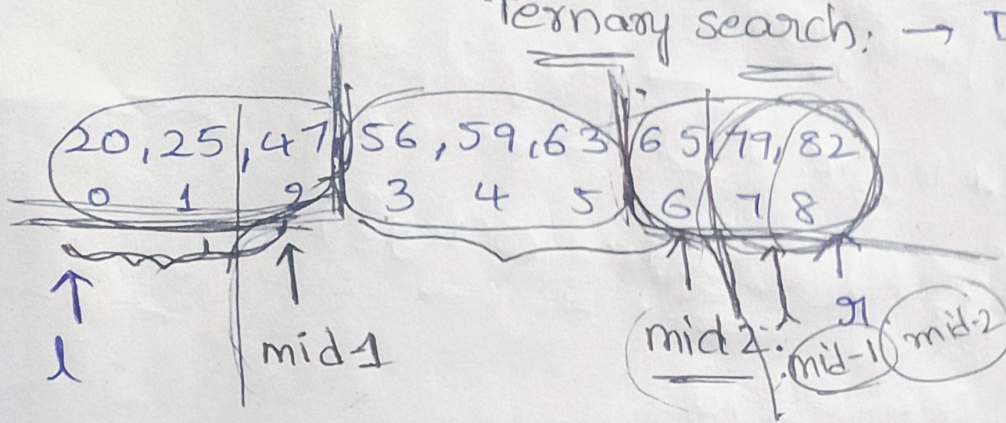 Ternary search: →
20, 25, 47 56, 59, 63 65, 79, 82
0 1 2 3 4 5 6 7 8
l mid1 mid2 r
mid-1 mid-2